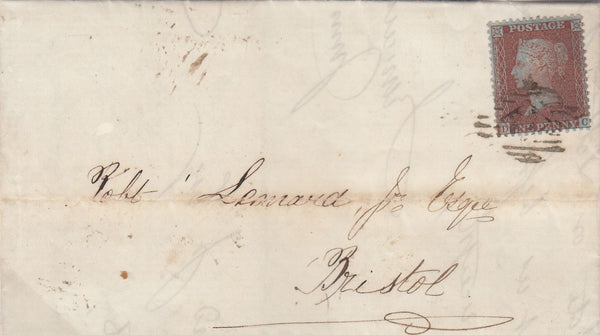 POSTAGE
ONE PENNY
C
Robt Leonard, Jr Esqre
Bristol